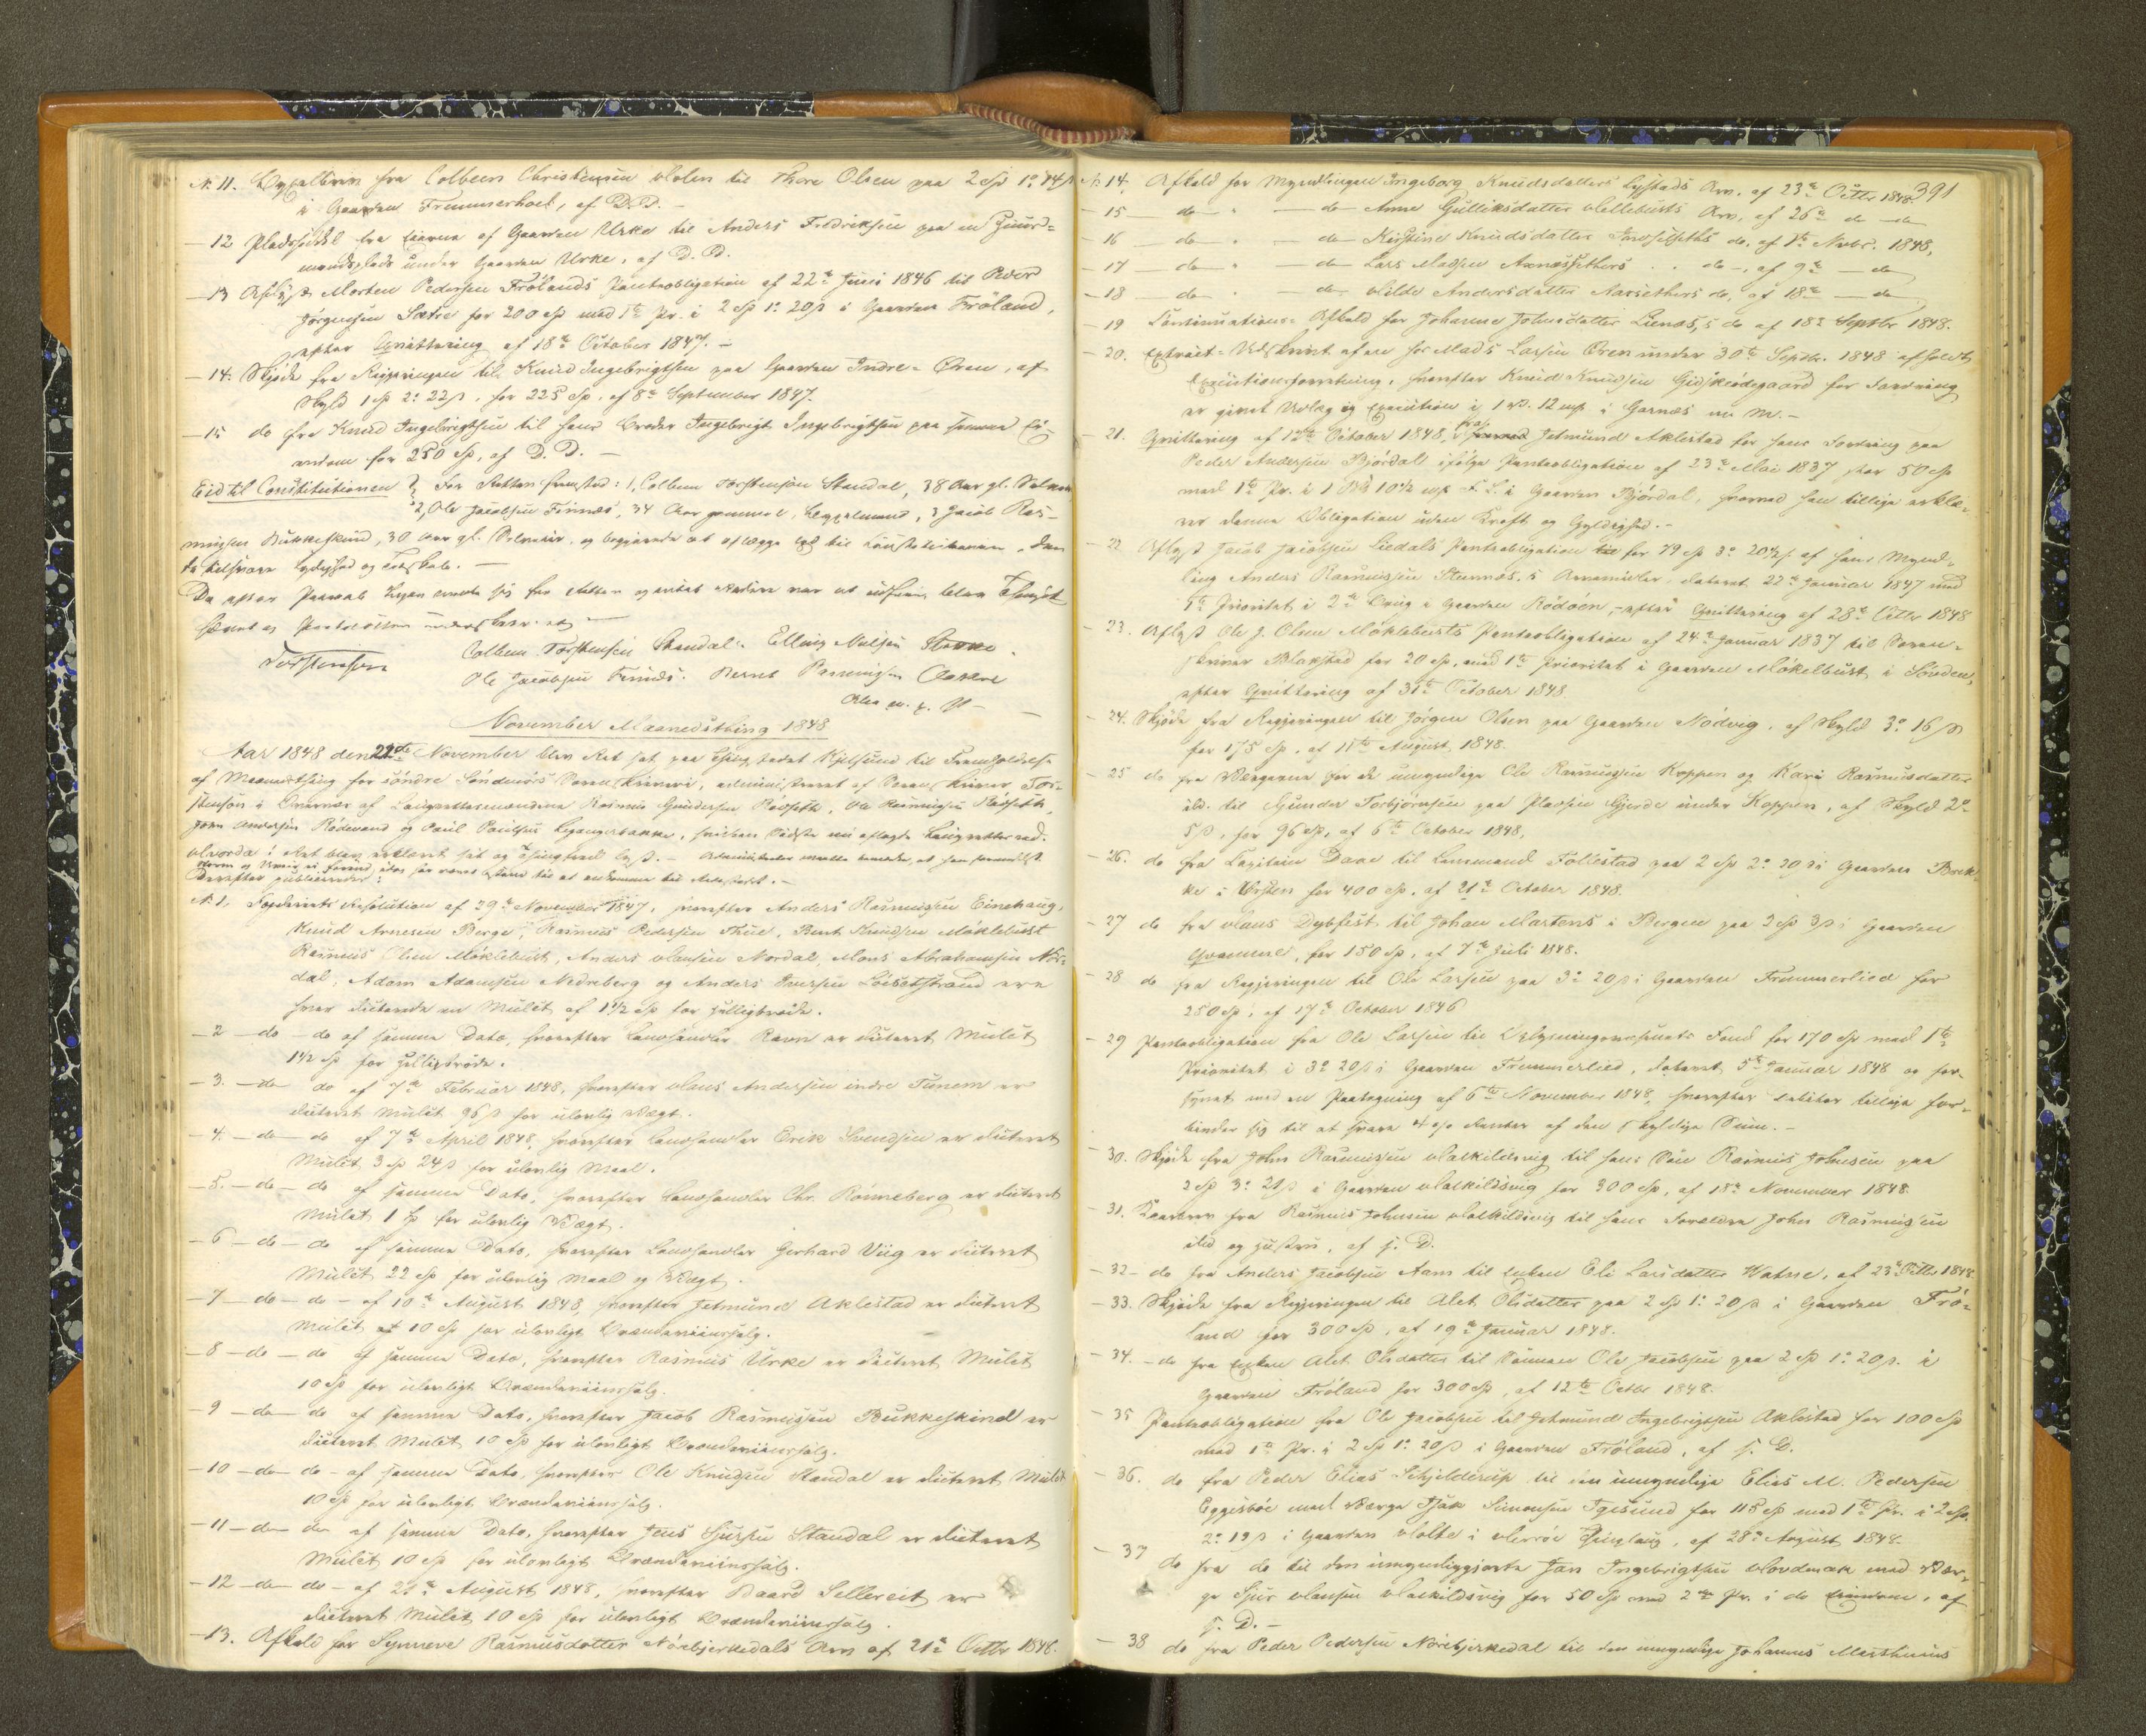 N. 11. Bygselbrev fra Colbeen Christensen Molen til Thore Olsen paa 2 sp 1 o: 14 s
i Gaarden Fremmerhoel, af D. D. -
- 12 Pladsseddel fra Eierne af Gaarden Urke til Anders Fredriksen paa en Huus=
mandsplads under Gaarden Urke, af D. D.
- 13 Aflyst Morten Pedersen Frölands Panteobligation af 22de Juni 1846 til Peder
Jörgensen Sætre for 200 sp med 1te Pr. i 2 sp 1 o: 20 s i Gaarden Fröland,
efter Qvittering af 18de October 1847. -
- 14. Skjöde fra Regjeringen til Knud Ingebrigtsen paa Gaarden Indre-Ören, af
Skyld 1 sp 2 o: 22 s, for 225 sp, af 8de September 1847.
- 15 do fra Knud Ingebrigtsen til hans Broder Ingebrigt Ingebrigtsen paa samme Ei-
endom for 250 sp, af D. D. -
Eid til Constitutionen For Retten fremstod: 1, Colbeen Torstensen Standal, 38 Aar gl. Selveier
2, Ole Jacobsen Finnes, 34 Aar gammel, Bygselmand, 3 Jacob Ras-
mussen Bukkeskind, 30 Aar gl. Selveier, og begjærede at aflægge Eed til Constitutionen, den
te tilsvare Lydighed og Troskab. -
Da efter Paaraab Ingen meldte sig for Retten og intet videre var at udföre, blev Thinget
hævet og Protocollen underskrevet. -
Torstensen Colbeen Torstensen Standal. Elling Nilsen Storke.
Ole Jacobsen Finnes. Bernt Rasmussen Aaskre
Alle m. p. P.
November Maanedsthing 1848
Aar 1848 den 24de November blev Ret sat paa Thingstedet Kjilsund til Fremholdelse
af Maanedsthing for söndre Söndmörs Sorenskriveri, administreret af Sorenskriver Tor-
stensön i Overvær af Laugrettesmændene Rasmus Gundersen Rödseth, Ole Rasmussen Rödseth,
John Andersen Rödevand og Paul Paulsen Leganger bakke, hvilken Sidste nu aflagde Laugretteseed.
Derefter publiceredes:
N. 1, Foged Resolution af 29de November 1847, hvorefter Anders Rasmussen Einehaug,
Knud Arnesen Berge, Rasmus Pedersen Thue, Bent Knudsen Möklebust
Rasmus Olsen Möklebust, Anders Clausen Nordal, Mons Abrahamsen Nor=
dal, Adam Adamsen Nedreberg og Anders Iversen Löisetstrand ere
hver dicterede en Mulct af 1 1/2 sp for Helligbröde.
- 2 - do - do af samme Dato, hvorefter Landhandler Ravn er dicteret Mulct
1 1/2 sp for Helligbröde.
- 3. - do do af 7de Februar 1848, hvorefter Claus Andersen indre Tunem er
dicteret Mulct 96 s for ulovlig Vægt.
- 4. - do - do af 7de April 1848, hvorefter Landhandler Erik Svendsen er dicteret
Mulct 3 sp 24 s for ulovlig Maal.
- 5. - do - do af samme Dato, hvorefter Landhandler Chr. Rönneberg er dicteret
Mulct 1 sp for ulovlig Vægt.
- 6 - do - do af samme Dato, hvorefter Landhandler Gerhard Viig er dicteret
Mulct 22 sp for ulovlig Maal og Vægt.
- 7 - do - do - af 10de August 1848, hvorefter Jetmund Aklestad er dicteret
Mulct af 10 sp for ulovligt Brændeviinssalg.
- 8 - do - do af samme Dato, hvorefter Rasmus Urke er dicteret Mulct
10 sp for ulovligt Brændeviinssalg.
- 9 - do - do af samme Dato, hvorefter Jacob Rasmussen Bukkeskind er
dicteret Mulct 10 sp for ulovligt Brændeviinssalg.
- 10 - do - do - af samme Dato, hvorefter Ole Knudsen Standal er dicteret Mulct
10 sp for ulovligt Brændeviinssalg.
- 11 - do - do af samme Dato, hvorefter Jens Sjursen Standal er dicteret
Mulct 10 sp for ulovligt Brændeviinssalg.
- 12 - do - do - af 22de August 1848, hvorefter Baard Sellereit er
dicteret Mulct 10 sp for ulovligt Brændeviinssalg.
- 13. Afkald for Synneve Rasmusdatter Nörebjerkedals Arv af 21de Octbr 1848.
391
N. 14, Afkald for Myndlingen Ingeborg Knudsdatters Lystads Arv, af 23de Octbr 1848.
- 15 - do - - do Anne Gulliksdatter Mellebusts Arv, af 26de do - do
- 16 - do - - do Kirstine Knudsdatter do, af 1te Novbr. 1848,
- 17 - do - - do Lars Madsen Aarnessethers - do -, af 9de - do
- 18 - do - - do Milde Andersdatter Aarsethers do, af 18de - do
- 19 Continuations-Afkald for Johanne Johnsdatter Lienæs, s do af 18de Septbr 1848.
- 20. Extract-Udskrivt af en hos Mads Larsen Ören under 30te Septbr. 1848 afholdt
Executionsforretning, hvorefter Knud Knudsen Gidskeödegaard for Fordring
er givet Udlæg og Execution i 1 12 mk i Garnæs m. M. -
- 21. Qvittering af 12te October 1848, fra Jetmund Aklestad for hans Fordring paa
Peder Andersen Björdal ifölge Panteobligation af 23de Mai 1837, stor 50 sp
med 1te Pr. i 1 10 1/2 mk i Gaarden Björdal, hvorved han tillige erklæ-
rer denne Obligation uden Kraft og Gyldighed. -
- 22 Aflyst Jacob Jacobsen Liedals Panteobligation for 79 sp 3 o: 20 1/2 s af hans Mynd-
ling Anders Rasmussen Stennæs, s Arvemidler, dateret 22de Januar 1847 med
1te Prioritet i 2de Brug i Gaarden Rödöen, - efter Qvittering af 28de Octbr 1848
- 23. Aflyst Ole J. Olsen Möklebusts Panteobligation af 24de Januar 1837 til Soren-
skriver Blakstad for 20 sp, med 1te Prioritet i Gaarden Mökelbust i Sövden,
efter Qvittering af 31te October 1848.
- 24. Skjöde fra Regjeringen til Jörgen Olsen paa Gaarden Nödveg, af Skyld 3 o: 16 s
for 175 sp, af 11te August 1848.
- 25 do fra Værgerne for de umyndige Ole Rasmussen Koppen og Kari Rasmusdatter
ibd. til Gunder Torbjörnsen paa Pladsen Gjerde under Koppen, af Skyld 2 o:
5 s, for 96 sp, af 6te October 1848,
- 26. do fra Capitain Daae til Lensmand Follestad paa 2 sp 2 o: 20 s i Gaarden Brek-
ke i Örsten for 400 sp, af 21de October 1848.
- 27 do fra Claus Dybfest til Johan Martens i Bergen paa 2 sp 3 s i Gaarden
Gvammel, for 150 sp, af 7de Juli 1848.
- 28 do fra Regjeringen til Ole Larsen paa 3 o: 20 s i Gaarden Fremmerlied for
250 sp, af 17de October 1846
- 29 Panteobligation fra Ole Larsen til Oplysningsvæsenets Fond for 170 sp med 1te
Prioritet i 3 o: 20 s i Gaarden Fremmerlied, dateret 5te Januar 1848 og for-
synet med en Paategning af 6te November 1848, hvorefter Debitor tillige for-
binder sig til at svare 4 % Renter af den skyldige Sum. -
- 30. Skjöde fra John Rasmussen Walkildsvig til hans Sön Rasmus Johnsen paa
2 sp 3 o: 21 s i Gaarden Walkildsvig for 300 sp, af 18de November 1848.
- 31. Kaarbrev fra Rasmus Johnsen Walkildsvig til hans Forældre John Rasmussen
ibd og Hustru, af s. D.
- 32 - do fra Anders Jacobsen Aam til Enken Eli Larsdatter Watne, af 23de Octbr 1848.
- 33. Skjöde fra Regjeringen til Alet Olsdatter paa 2 sp 1 o: 20 s i Gaarden Frö-
land for 300 sp, af 19de Januar 1848.
- 34. - do fra Enken Alet Olsdatter til Sönnen Ole Jacobsen paa 2 sp 1 o: 20 s. i
Gaarden Fröland for 300 sp, af 12te Octbr 1848.
- 35 Panteobligation fra Ole Jacobsen til Jetmund Ingebrigtsen Aklestad for 100 sp
med 1te Pr. i 2 sp 1 o: 20 s i Gaarden Fröland, af s. D.
- 36. do fra Peder Elias Schjelderup til den umyndige Elias M. Pedersen
Eggesböe med Værge Isak Simonsen Igesund for 118 sp med 1te Pr. i 2 sp.
2 o: 19 s i Gaarden Molte i Herröe Thinglaug, af 28de August 1848.
- 37 do fra do til den umyndiggjorte Jan Ingebrigtsen Wordnæs med Vær-
ge Sjur Clausen Walkildsvig for 50 sp med 2de Pr. i do Eiendom, af
s. D. -
- 38 do fra Peder Pedersen Nörebjerkedal til den umyndige Johannes Marthinus